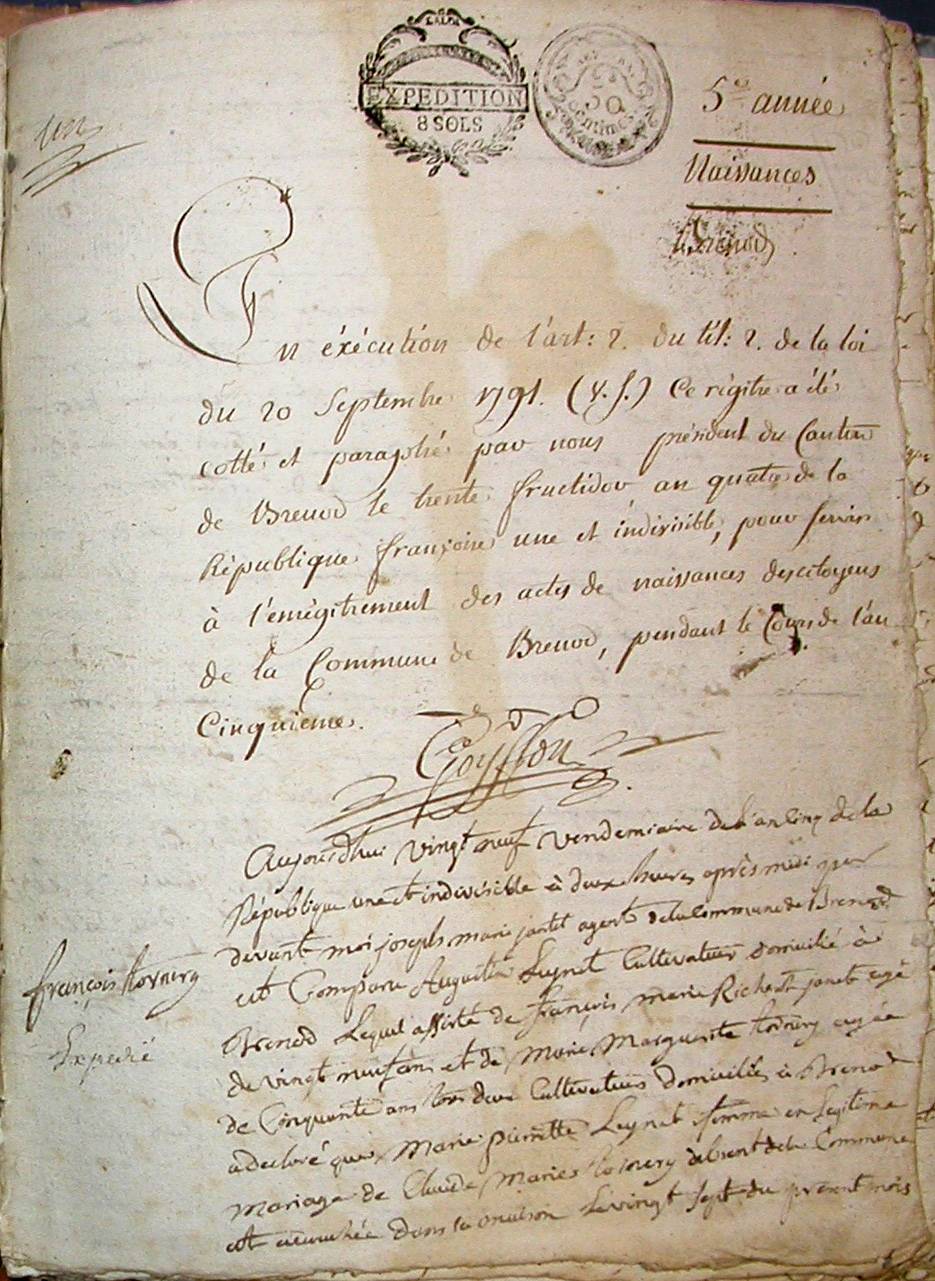 EXPEDITION
8 SOLS
50
centimes
5e année
Naissances
Brenod
En éxécution de l'art: 2. du tit: 2. de la loi
du 20 Septembre 1791. (V. S.) Ce régitre a été
cotté et paraphé par nous président du Canton
de Brenod le trente fructidor an quatre de la
République françoise une et indivisible, pour servir
à l'enrégitrement des actes de naissances des citoyens
de la Commune de Brenod, pendant le Cours de l'an
Cinquieme.
Aujourdhui vingt neuf vendemiaire de l'an Cinq de la
République une et indivisible à deux heures après midi par
devant moi joseph marie jantet agent de la Commune de Brenod
est Comparu Augustin Leynet Cultivateur domicilié à
Brenod Lequel assisté de françois marie Richerot jantet agé
de vingt neuf ans et de Marie Marguerite agée
de Cinquante ans tous deux Cultivateurs domiciliés à Brenod
a declaré que Marie pierrette Leynet femme en Legitime
mariage de Claude Marie absent de la Commune
est accouchée dans sa maison Le vingt sept du present mois
françois
Expedié